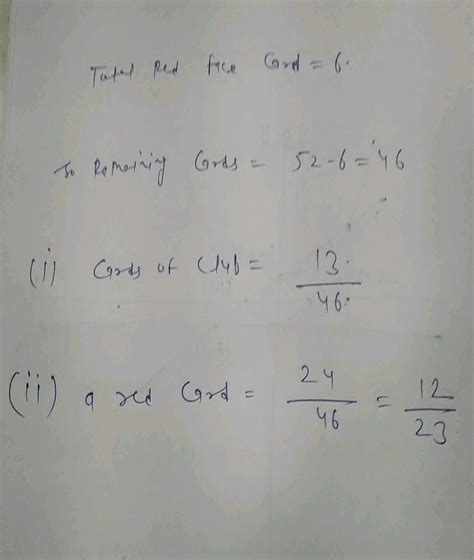 Total Red face Card = 6.
So Remaining Cards = 52-6 = 46
(i) Cards of Club = 13 / 46
(ii) a red Card = 24 / 46 = 12 / 23